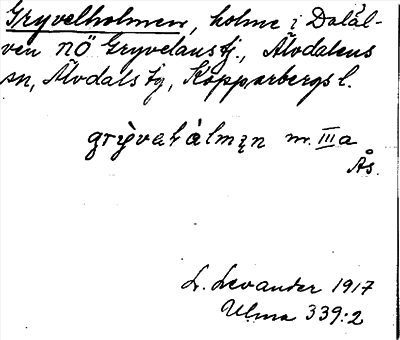 Gryvelholmen, holme i Daläl-
ven NÖ Gryvelåns tj., Älvdalens
sn, Älvdals tg, Kopparbergs l.
m. III a
Ås.
L. Levander 1917
Ulma 339:2